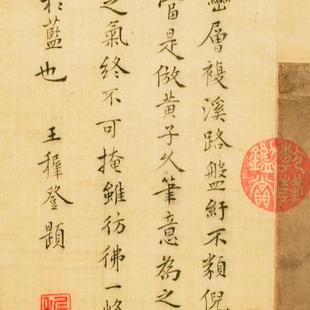 巒層複溪路盤紆不類倪
當是倣黃子久筆意為之
之氣終不可掩雖彷彿一峰
於藍也
王穉登題
乾隆鑑賞